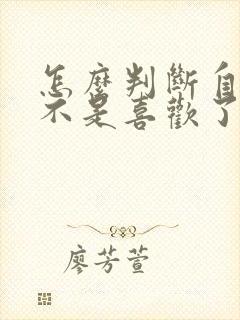 怎麼判斷自
不是喜歡了
廖芳萱